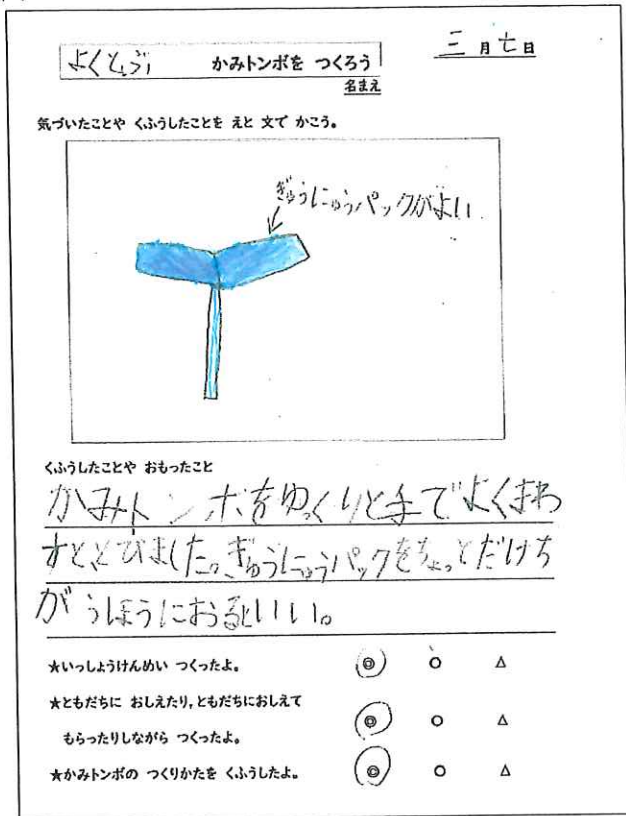 よくとぶ かみトンボを つくろう
三月七日
名まえ
気づいたことや くふうしたことを えと 文で かこう。
ぎゅうにゅうパックがよい
くふうしたことや おもったこと
かみトンボをゆっくりと手でよくまわ
すととびました。ぎゅうにゅうパックをちょっとだけち
がうほうにおるといい。
★いっしょうけんめい つくったよ。 ◎ ○ △
★ともだちに おしえたり,ともだちにおしえて
もらったりしながら つくったよ。 ◎ ○ △
★かみトンボの つくりかたを くふうしたよ。 ◎ ○ △